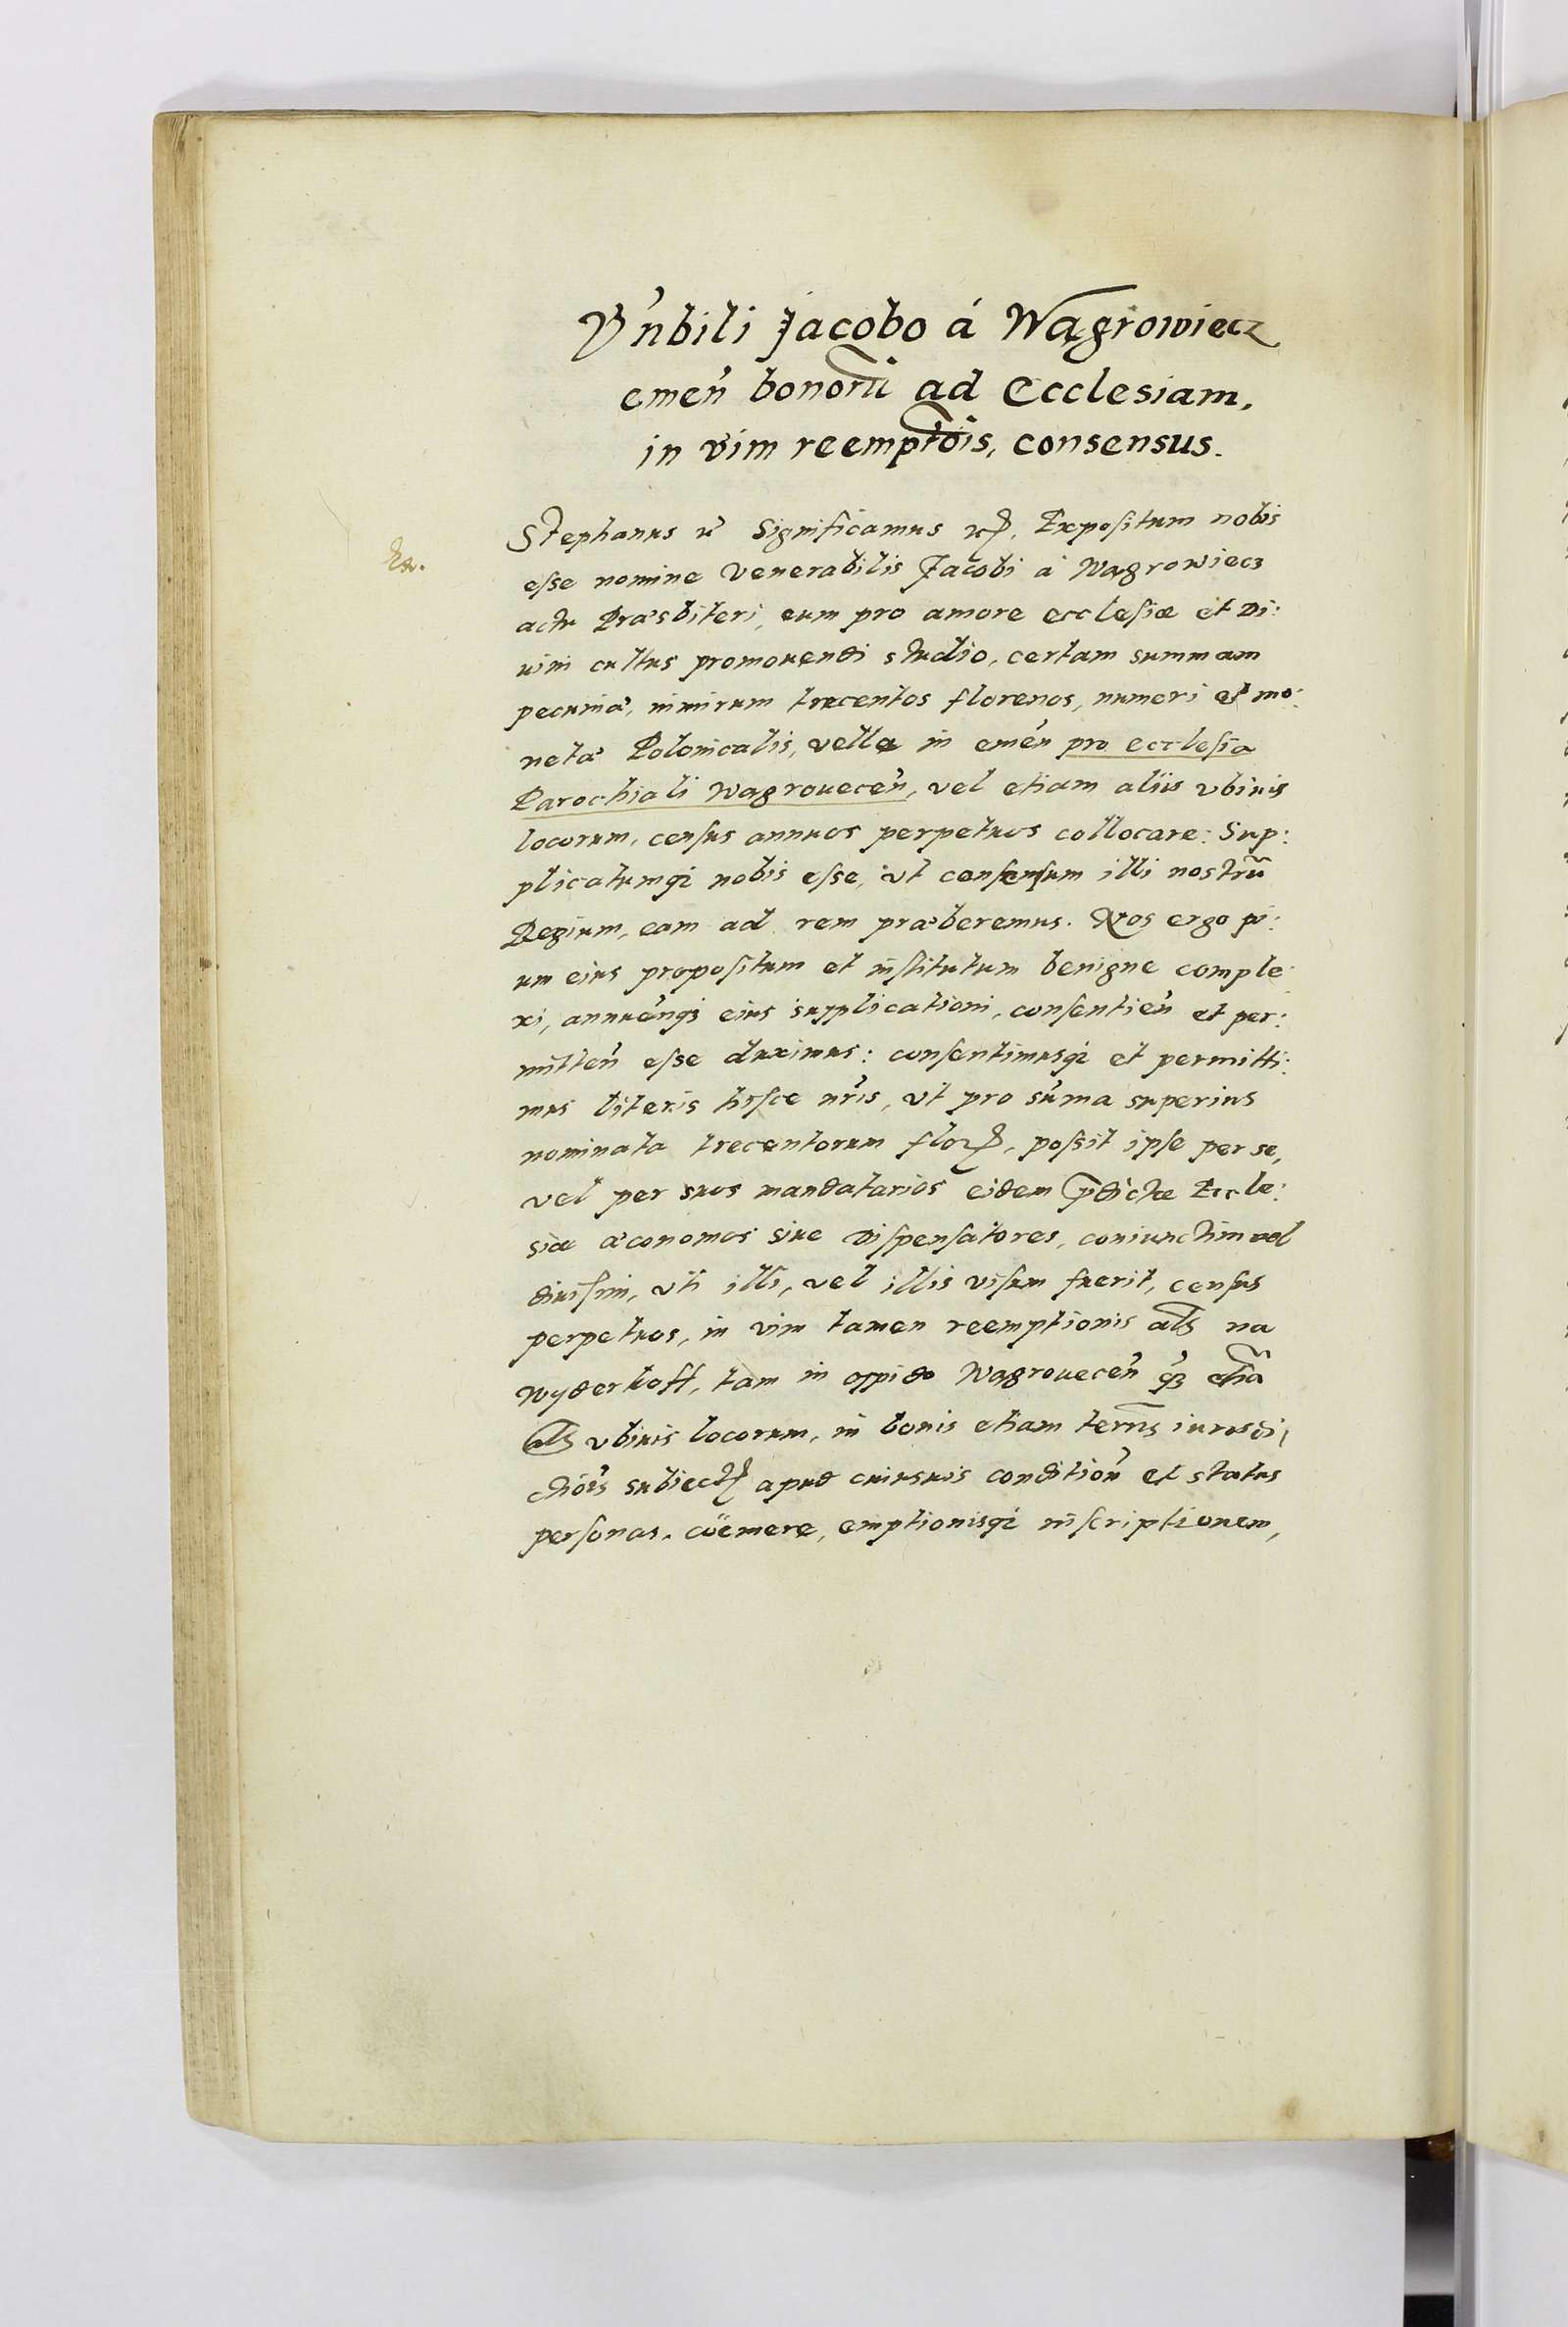 V'nbili Jacobo á Wągrowiecz
emen̉ bonorũ ad Ecclesiam,
in vim reemptõis, consensus.
Stephanus Significamus Expositum nobis
eſse nomine Venerabilis Jacobi á Wągrowiecz
actu Præsbiteri, eum pro amore eccleſiæ et Di:
uini cultus promouendi studio, certam summam
pecuniæ, nimirum trecentos florenos, numeri et mo:
netæ Polonicalis, velle in emen̉ pro eccleſia
Parochiali Wagrouecen̉, vel etiam aliis vbiuis
locorum, cenſus annuos perpetuos collocare: Sup:
plicatumq; nobis eſse, vt conſenſum illi nostrũ
Regium, eam ad rem præberemus. Nos ergo pi:
um eius propoſitum et inſtitutum benigne comple:
xi, annuen̉q; eius supplicationi, conſentien̉ et per:
mitten̉ eſse duximus: conſentimusq; et permitti:
mus literis hiſce nr̃is, vt pro sum̃a superius
nominata trecentorum flor, poſsit ipſe per se,
vel per suos mandatarios eidem p̃dictæ Eccle:
siæ œconomos siue Diſpenſatores, coniunctim vel
diuiſim, vti illi, vel illis viſum fuerit, cenſus
perpetuos, in vim tamen reemptionis als na
wyderkoff, tam in oppido Wągrouecen̉ q̃z etiã
als vbiuis locorum, in bonis etiam terris iurisdi,
ctiois̃ subiect apud cuiusuis condition̉ et status
perſonas, coëmere, emptionisq; inſcriptionem,